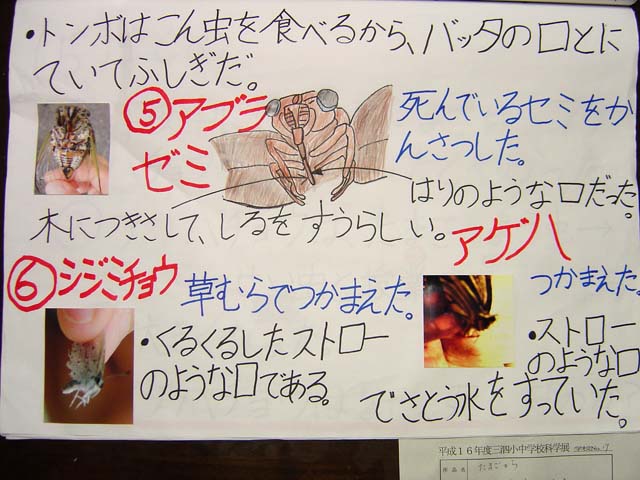 ・トンボはこん虫を食べるから、バッタの口とに
ていてふしぎだ。
⑤アブラ
ゼミ
死んでいるセミをか
んさつした。
はりのような口だった。
木につきさして、しるをすうらしい。
アゲハ
つかまえた。
⑥シジミチョウ
草むらでつかまえた。
・くるくるしたストロー
のような口である。
・ストロー
のような口
でさとう水をすっていた。
平成16年度三泗小中学校科学展
作品名